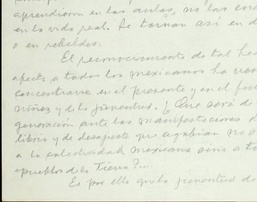 aprendieron en las aulas, no las
en la vida real. Se tornan así en
o en rebeldes.
El reconocimiento de tal
afecta a todos los mexicanos ha
concentrarse en el presente y en el
niñez y de la juventud. ¿Qué será de
generación ante las manifestaciones
y de desajuste que agobian no
a la colectividad mexicana sino a
pueblos de la tierra?...
Es por ello que la juventud